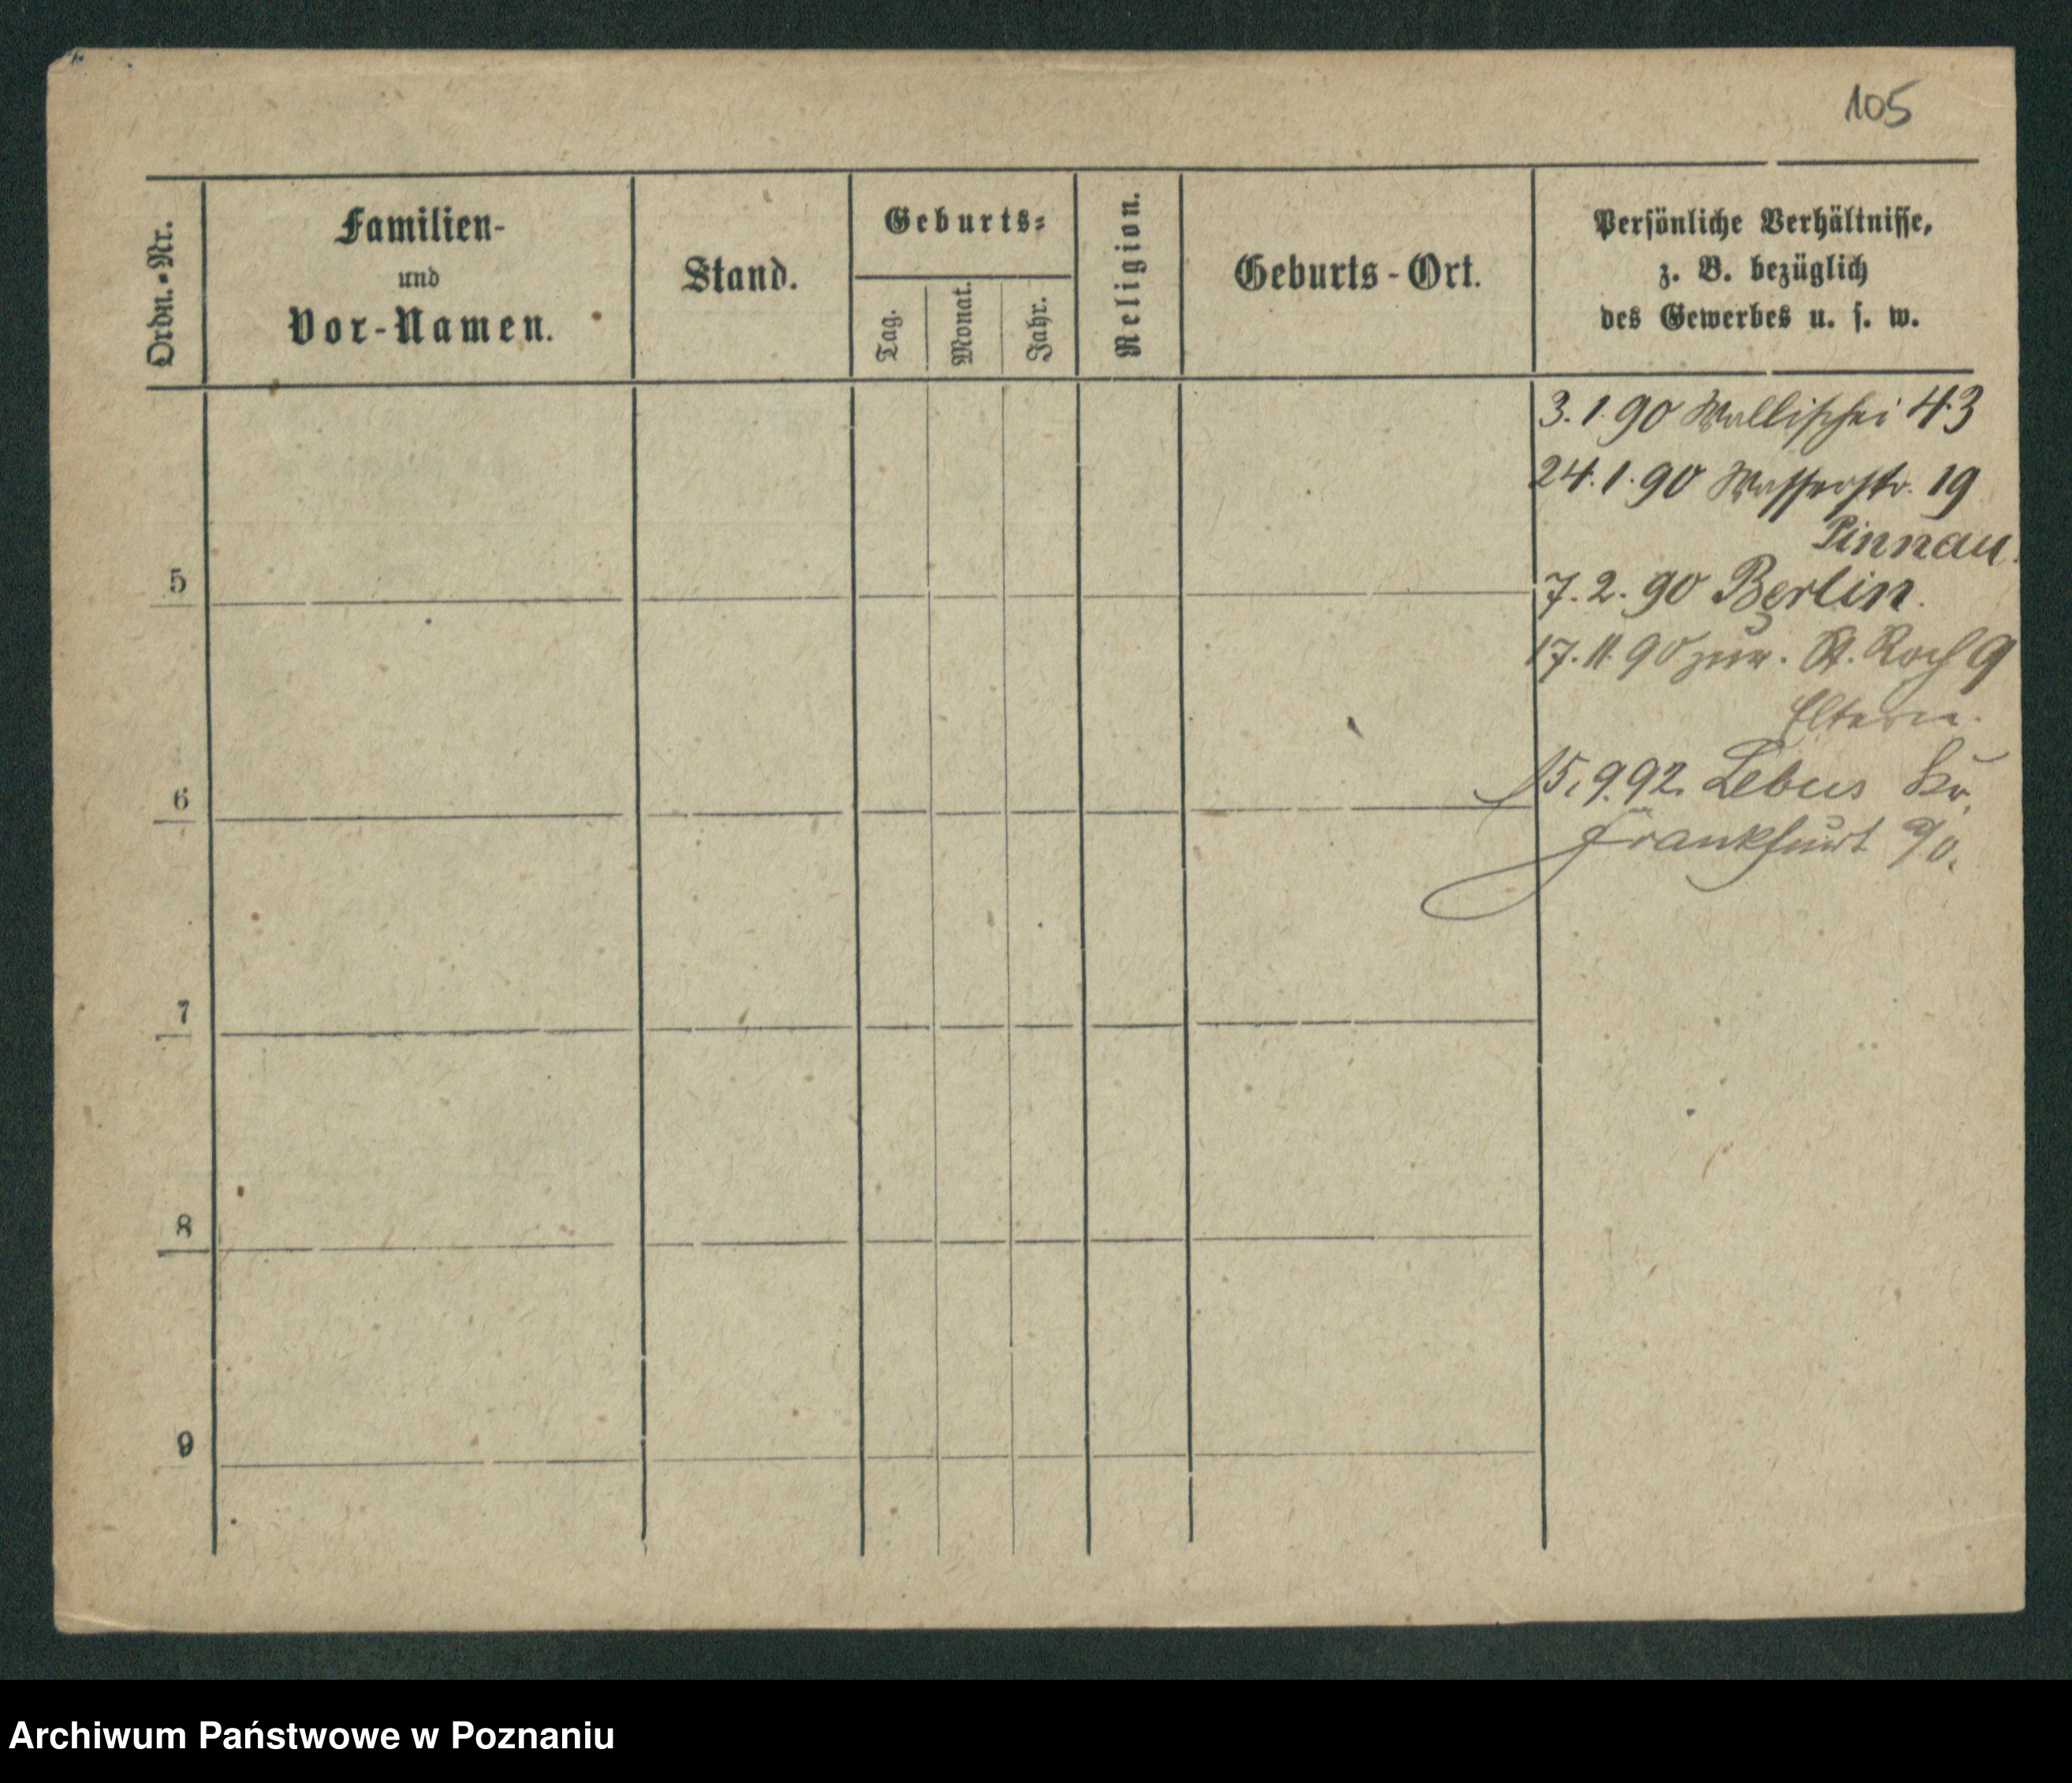 105
Ordn.-Nr.
Familien-
und
Vor-Namen.
Stand.
Geburts-
Tag.
Monat.
Jahr.
Religion.
Geburts-Ort.
Persönliche Verhältnisse,
z. B. bezüglich
des Gewerbes u. s. w.
3. 1. 90 Wallischei 43
24. 1. 90 Wasserstr. 19
Pinnau.
5
7. 2. 90 Berlin.
17. 11. 90 zur. St. Roch 9
Eltern.
6
15. 9. 92. Lebus Kr.
Frankfurt a/O.
7
8
9
Archiwum Państwowe w Poznaniu